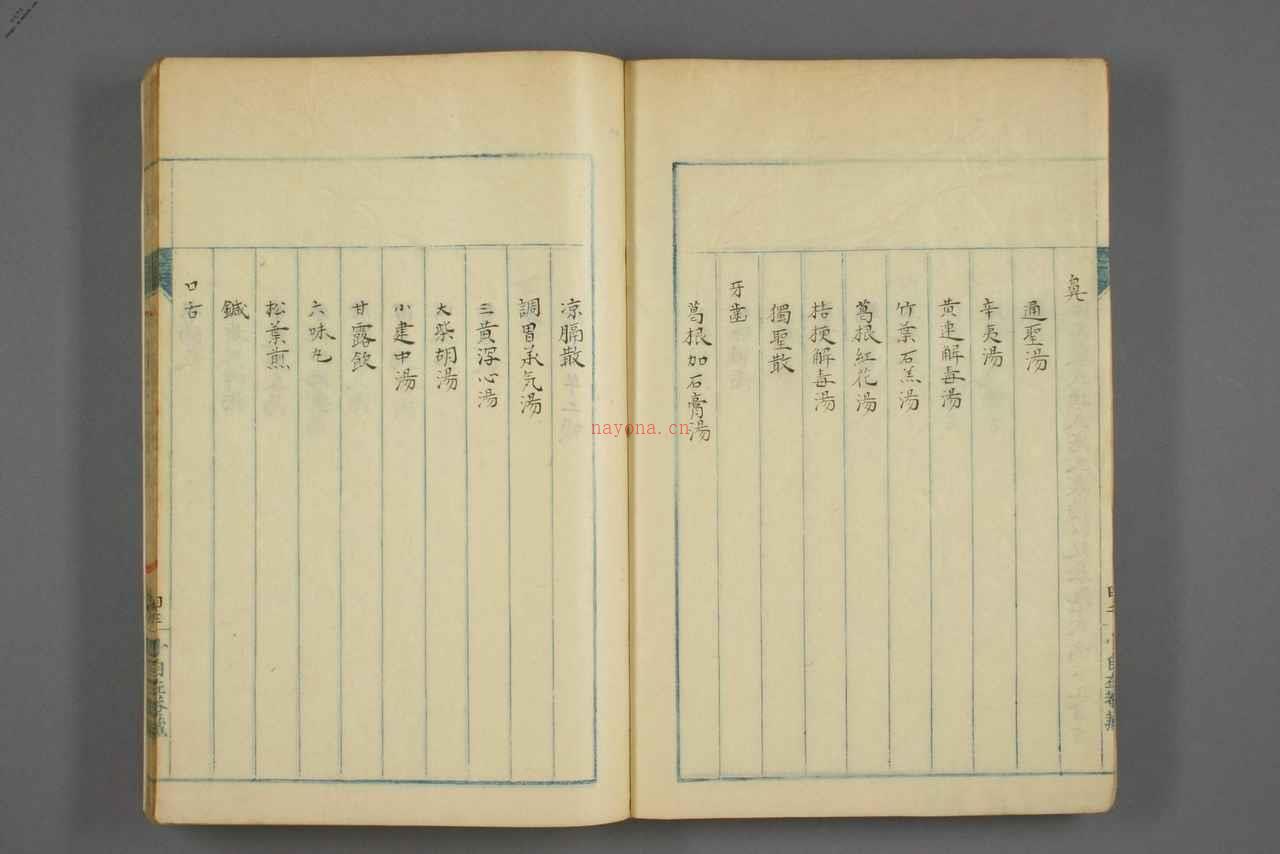 鼻
通聖湯
辛夷湯
黄連解毒湯
竹葉石羔湯
葛根紅花湯
桔梗解毒湯
獨聖散
牙齒
葛根加石膏湯
凉膈散
調胃承気湯
三黄泻心湯
大柴胡湯
小建中湯
甘露飲
六味丸
松葉煎
鍼
口舌
nayona.cn